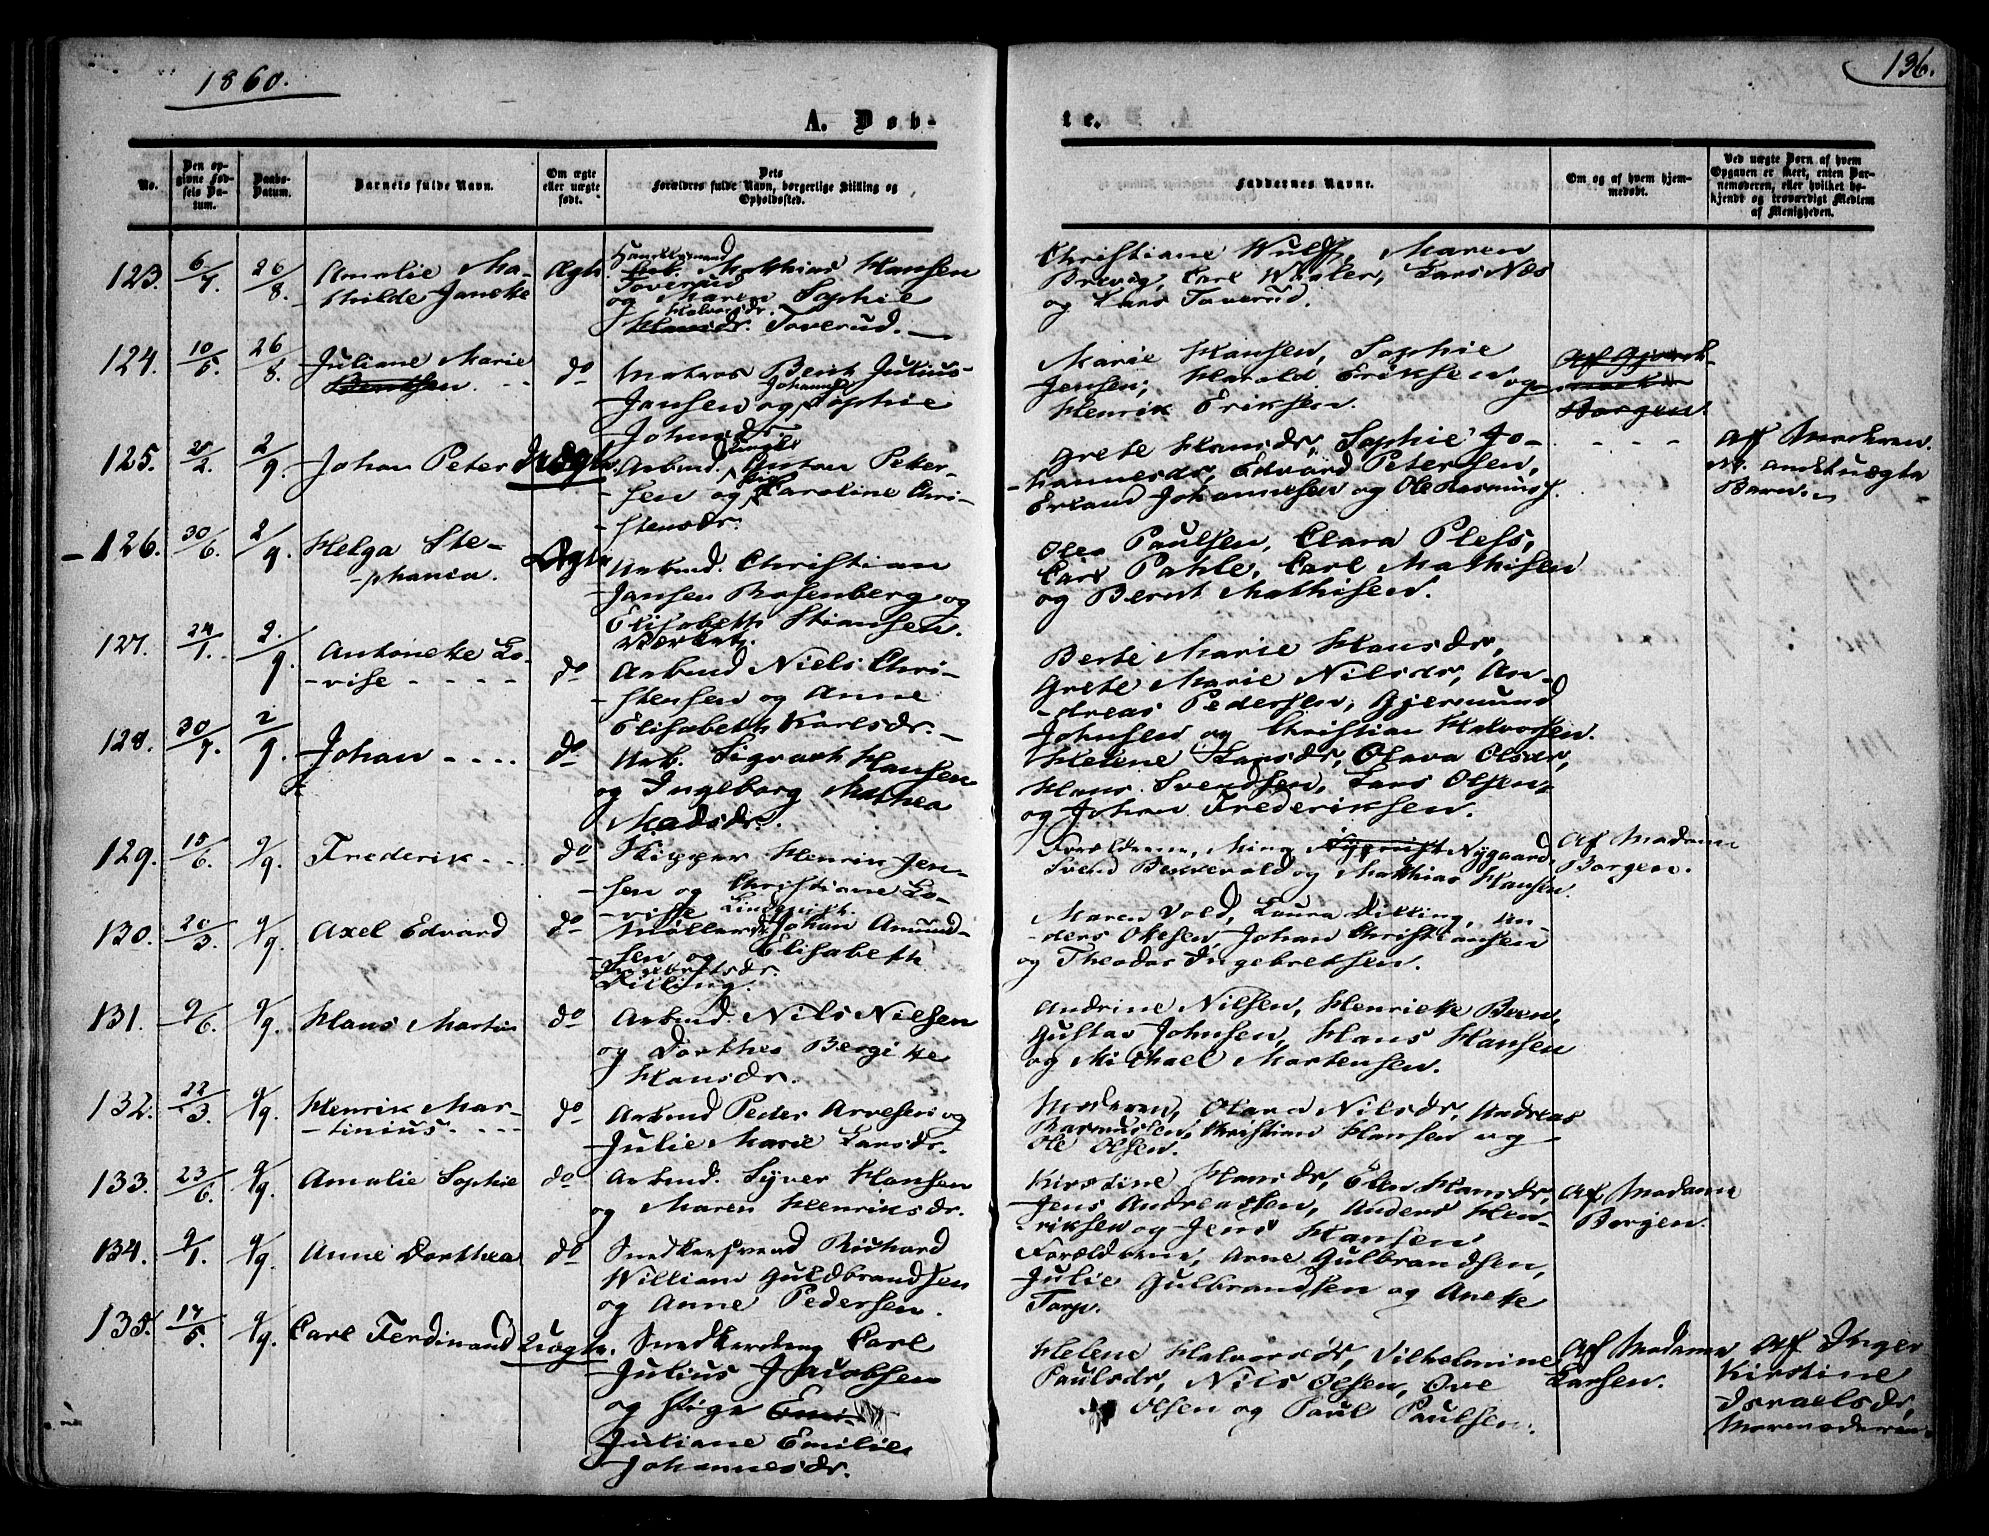 1860.
136.
A. Døb-
te.
No.
Den op-
givne Fød-
sels Da-
tum.
Daabs-
Datum.
Barnets fulde Navn.
Om ægte
eller uægte
født.
Dets
Forældres fulde Navn, borgerlige Stilling og
Opholdssted.
Faddernes Navne.
Om og af hvem hjem-
medøbt.
Ved uægte Børn af hvem
Opgaven er skeet, enten Bar-
nemoderen, eller hvilket be-
kjendt og troværdigt Medlem
af Menigheden.
123. 6/7 26/8. Amalie Ma- Ægte
thilde Janeke
Mathias Hansen
Toverud
og Maren Sophie
Halvorsdr.
Hansdr. Toverud.
Christiane Wulff, Maren
Brevig, Carl Wigler, Lars Næs
og Lars Toverud.
124. 10/5. 26/8. Juliane Marie do
Berntsen.
Matros Bernt Julius
Jansen og Sophie
Johannesdr.
Marie Hansen, Sophie
Jensen, Harald Eriksen og
Henrik Eriksen.
Borgen
125. 28/2. 2/9. Johan Peter Uægte
Arbmd. Anton Peter-
sen og Pige Caroline Chri-
stensdr.
Grete Hansdr, Sophie Jo-
hannesdr, Edvard Petersen,
Erland Johannesen og Ole Rasmuss.
Af Moderen.
uægte
Barn.
126. 30/6. 2/9. Helga Ste- Ægte
phania.
Arbmd. Christian
Jansen Rosenberg og
Elisabeth Stiansen.
Værket.
Olea Paulsen, Clara Pless,
Carl Pahle, Carl Mathisen
og Bernt Mathisen.
127. 24/1. 2/9. Antoneke Lo- do
vise
Arbmd Niels Chri-
stensen og Anne
Elisabeth Karlsdr.
Berte Marie Hansdr,
Grete Marie Nilsdr, An-
dreas Pedersen, Gjermund
Johnsen og Christian Halvorsen.
128. 30/7. 2/9. Johan do
Arb. Sigvart Hansen
og Ingeborg Mathea
Madsdr.
Helene Larsdr, Olava Olsdr,
Hans Svendsen, Lars Olsen,
og Johan Frederiksen.
129. 15/6. 9/9. Frederik do
Skipper Henrik Jen-
sen og Christiane Lo-
vise
Forældrene, Mina Nygaard,
Svend Bekkevold og Mathias Hansen.
Af Madame
Borgen.
130. 20/3. 9/9. Axel Edvard do
Møllerd. Johan Amund-
sen og Elisabeth
Ingebretsdr.
Dilling.
Maren Vold, Laura Dilling, An-
ders Olesen, Johan Christiansen
og Theodor Ingebretsen.
131. 9/6. 9/9. Hans Martin do
Arbmd. Nils Nielsen
og Dorthea Bergitte
Hansdr.
Andrine Nilsen, Henriette Been,
Gustav Johnsen, Hans Hansen
og Michael Mortensen.
132. 22/3. 9/9. Henrik Mar- do
tinius.
Arbmd Peder Arvesen og
Julie Marie Larsdr.
Moderen, Olava Nilsdr, Andreas
Rasmussen, Christian Hansen og
Ole Olsen.
133. 23/6. 9/9. Amalie Sophie do
Arbmd. Syver Hansen
og Maren Henriksdr.
Kirstine Hansdr, Elen Hansdr,
Jens Andreassen, Anders Hen-
riksen og Jens Hansen
Af Madame
Borgen.
134. 9/1. 9/9. Anne Dorthea do
Snedkersvend Richard
William Guldbrandsen
og Anne Pedersen.
Forældrene, Arne Gulbrandsen,
Julie Gulbrandsen og Aneke
Torp.
135. 17/5. 9/9. Carl Ferdinand Uægte.
Snedkerdreng Carl
Julius Jacobsen
og Pige
Juliane Emilie
Johannesdr.
Helene Halvorsdr, Vilhelmine
Paulsdr, Nils Olsen, Ove
Olsen og Paul Paulsen.
Af Madame
Larsen.
Af Inger
Kirstine
Israelsdr,
Mormoderen.